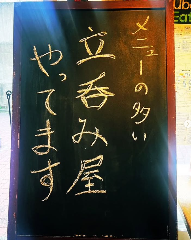 メニューの多い
立呑み屋
やってます
Ub
Eat